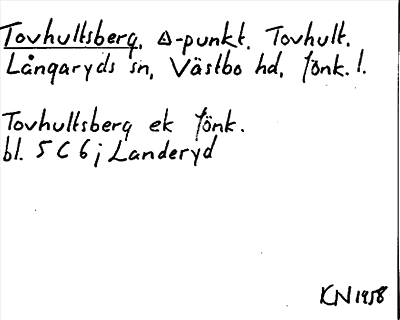 Tovhultsberg, △-punkt, Tovhult,
Långaryds sn, Västbo hd, Jönk. l.
Tovhultsberg ek Jönk.
bl. 5 C 6 j Landeryd
KN 1958